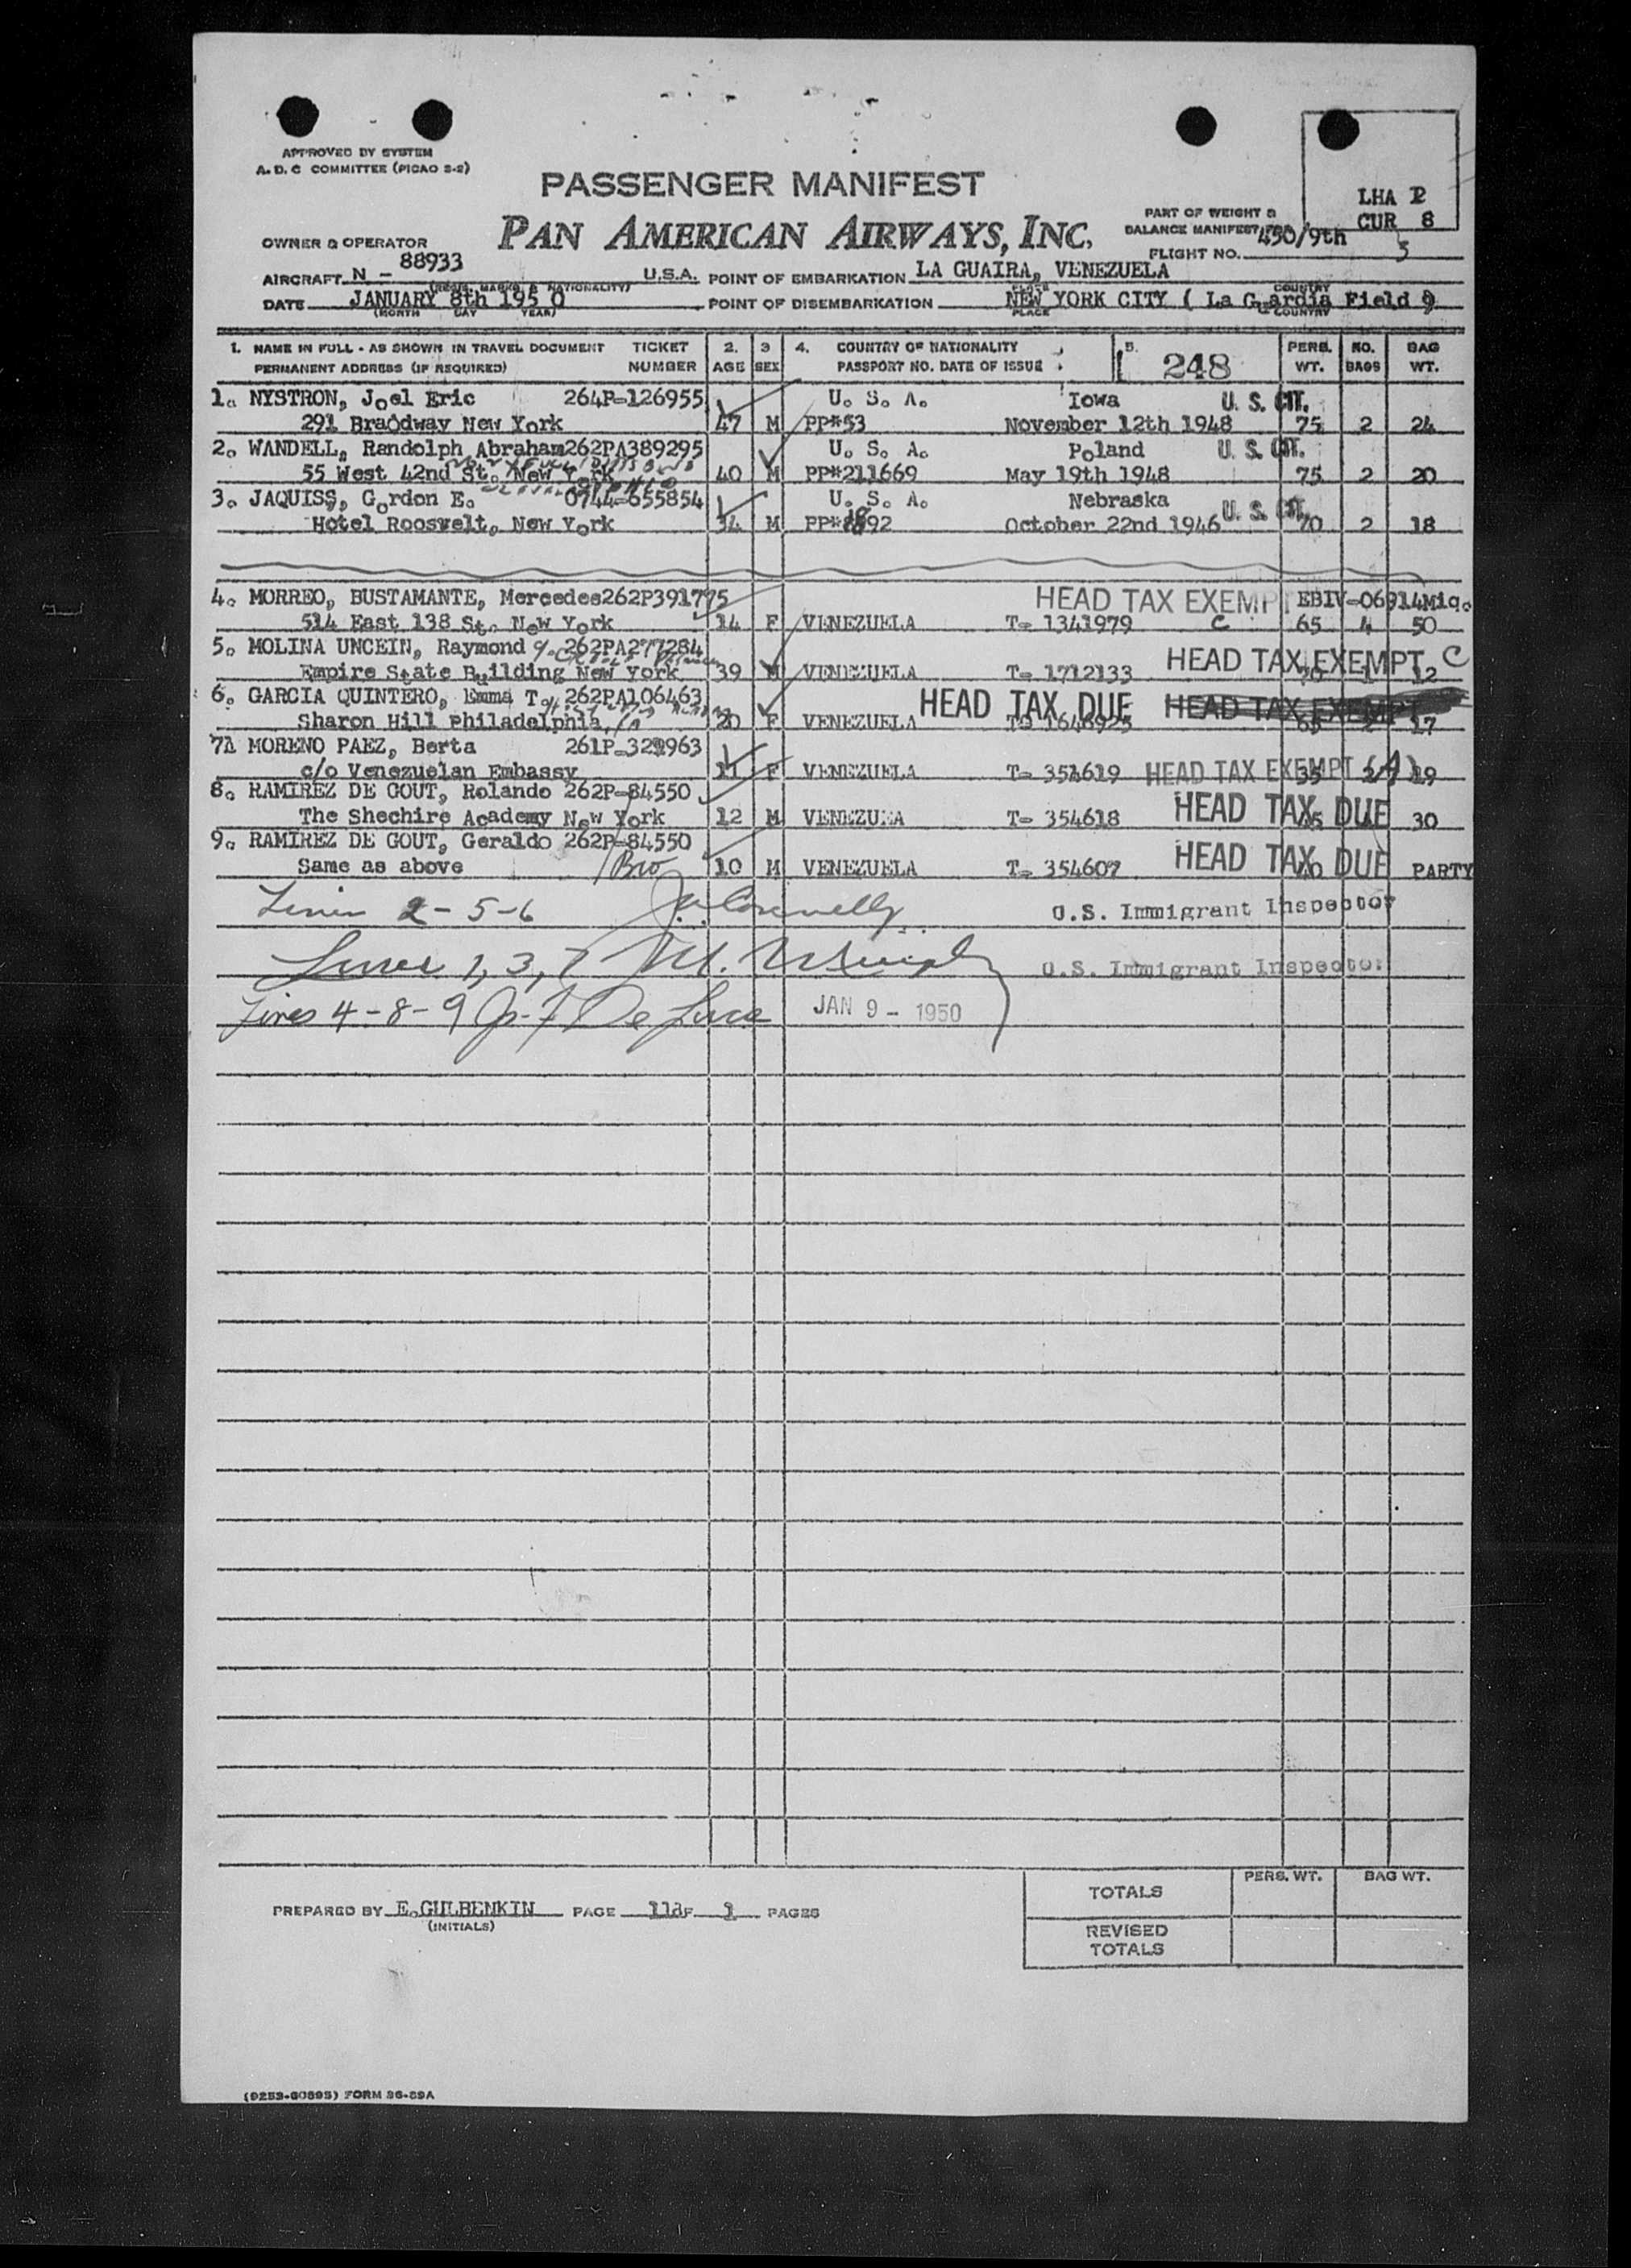 APPROVED BY SYSTEM
A. D. C COMMITTEE (PICAO S-2)
PASSENGER MANIFEST
PAN AMERICAN AIRWAYS, INC.
LHA P
CUR 8
5
PART OF WEIGHT &
BALANCE MANIFEST
FLIGHT NO. 450/9th
OWNER & OPERATOR
AIRCRAFT N - 88933 U.S.A. POINT OF EMBARKATION LA GUAIRA, VENEZUELA
(REGIS. MARKS & NATIONALITY) PLACE COUNTRY
DATE JANUARY 8th 195 0 POINT OF DISEMBARKATION NEW YORK CITY ( La Guardia Field )
(MONTH DAY YEAR) PLACE COUNTRY
1. NAME IN FULL - AS SHOWN IN TRAVEL DOCUMENT TICKET 2. 3 4. COUNTRY OF NATIONALITY 5. 248 PERS. NO. BAG
PERMANENT ADDRESS (IF REQUIRED) NUMBER AGE SEX PASSPORT NO. DATE OF ISSUE WT. BAGS WT.
1. NYSTRON, Joel Eric 264P-126955 U. S. A. Iowa U. S. CIT.
291 Braodway New York 47 M PP#53 November 12th 1948 75 2 24
2. WANDELL, Randolph Abraham 262PA389295 U. S. A. Poland U. S. CIT.
55 West 42nd St. New York 40 M PP#211669 May 19th 1948 75 2 20
3. JAQUISS, Gordon E. 0744-655854 U. S. A. Nebraska U. S. CIT.
Hotel Rooswelt, New York 34 M October 22nd 1946 70 2 18
4. MORREO, BUSTAMANTE, Mercedes 262P391775 HEAD TAX EXEMPT EBIV-06914Miq.
514 East 138 St. New York 14 F VENEZUELA T- 1341979 C 65 4 50
5. MOLINA UNCEIN, Raymond 262PA277284
Empire State Building New York 39 M VENEZUELA T- 1712133 HEAD TAX EXEMPT C 12
6. GARCIA QUINTERO, Emma T. 262PA106463 HEAD TAX DUE HEAD TAX EXEMPT
Sharon Hill Philadelphia, 20 F VENEZUELA T- 1646925 65 17
7. MORENO PAEZ, Berta
c/o Venezuelan Embassy 11 F VENEZUELA HEAD TAX EXEMPT (A) 35 19
8. RAMIREZ DE GOUT, Rolando 262P-84550
The Shechire Academy New York 12 M VENEZUEA T- 354618 HEAD TAX DUE 30
9. RAMIREZ DE GOUT, Geraldo 262P-84550
Same as above Bro 10 M VENEZUELA T- 354607 HEAD TAX DUE PARTY
Lines 2-5-6 U.S. Immigrant Inspector
Lines 1, 3, 7 U.S. Immigrant Inspector
Lines 4-8-9 De Luca JAN 9 - 1950
PREPARED BY E.GULBENKIN PAGE 1 OF 1 PAGES
(INITIALS)
PERS. WT. BAG WT.
TOTALS
REVISED
TOTALS
(9253-60895) FORM 36-89A